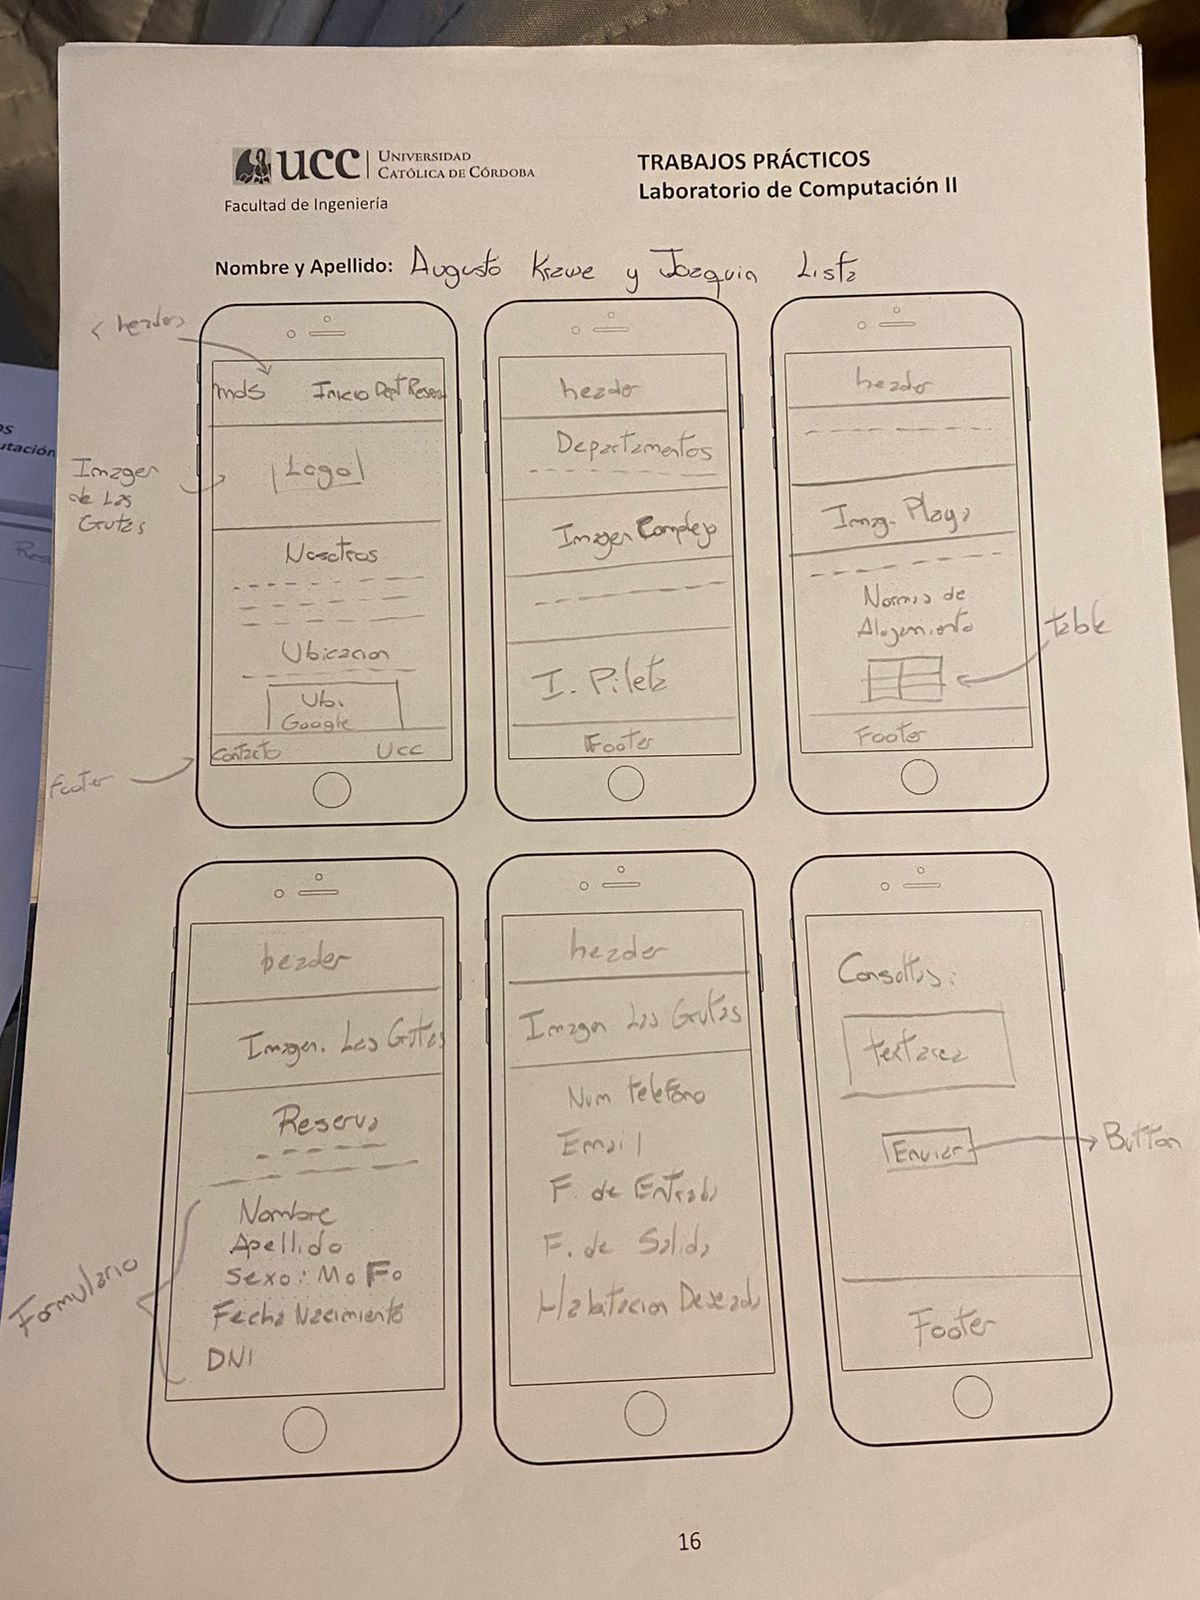 UCC UNIVERSIDAD
CATÓLICA DE CÓRDOBA
Facultad de Ingeniería
TRABAJOS PRÁCTICOS
Laboratorio de Computación II
Nombre y Apellido: Augusto y Joaquin Lista
< header>
mds Inicio Dept Reserva
Logo
Imagen
de Las
Grutas
Nosotros
Ubicacion
Ubi
Google
Contacto UCC
footer
header
Departamentos
Imagen Complejo
I. Pileta
Footer
header
Imag. Playa
Normas de
Alojamiento
table
Footer
header
Imagen. Las Grutas
Reserva
Formulario
Nombre
Apellido
Sexo: Mo Fo
Fecha Nacimiento
DNI
header
Imagen Las Grutas
Num telefono
Email
F. de Entrada
F. de Salida
Habitacion Deseada
Consultas:
textarea
Enviar
Button
Footer
16